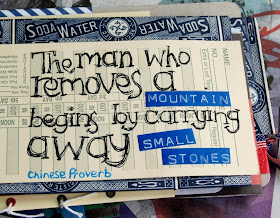 SODA WATER
SODA WATER
The man who
removes a
MOUNTAIN
begins by carrying
away SMALL
STONES
Chinese Proverb
NAME